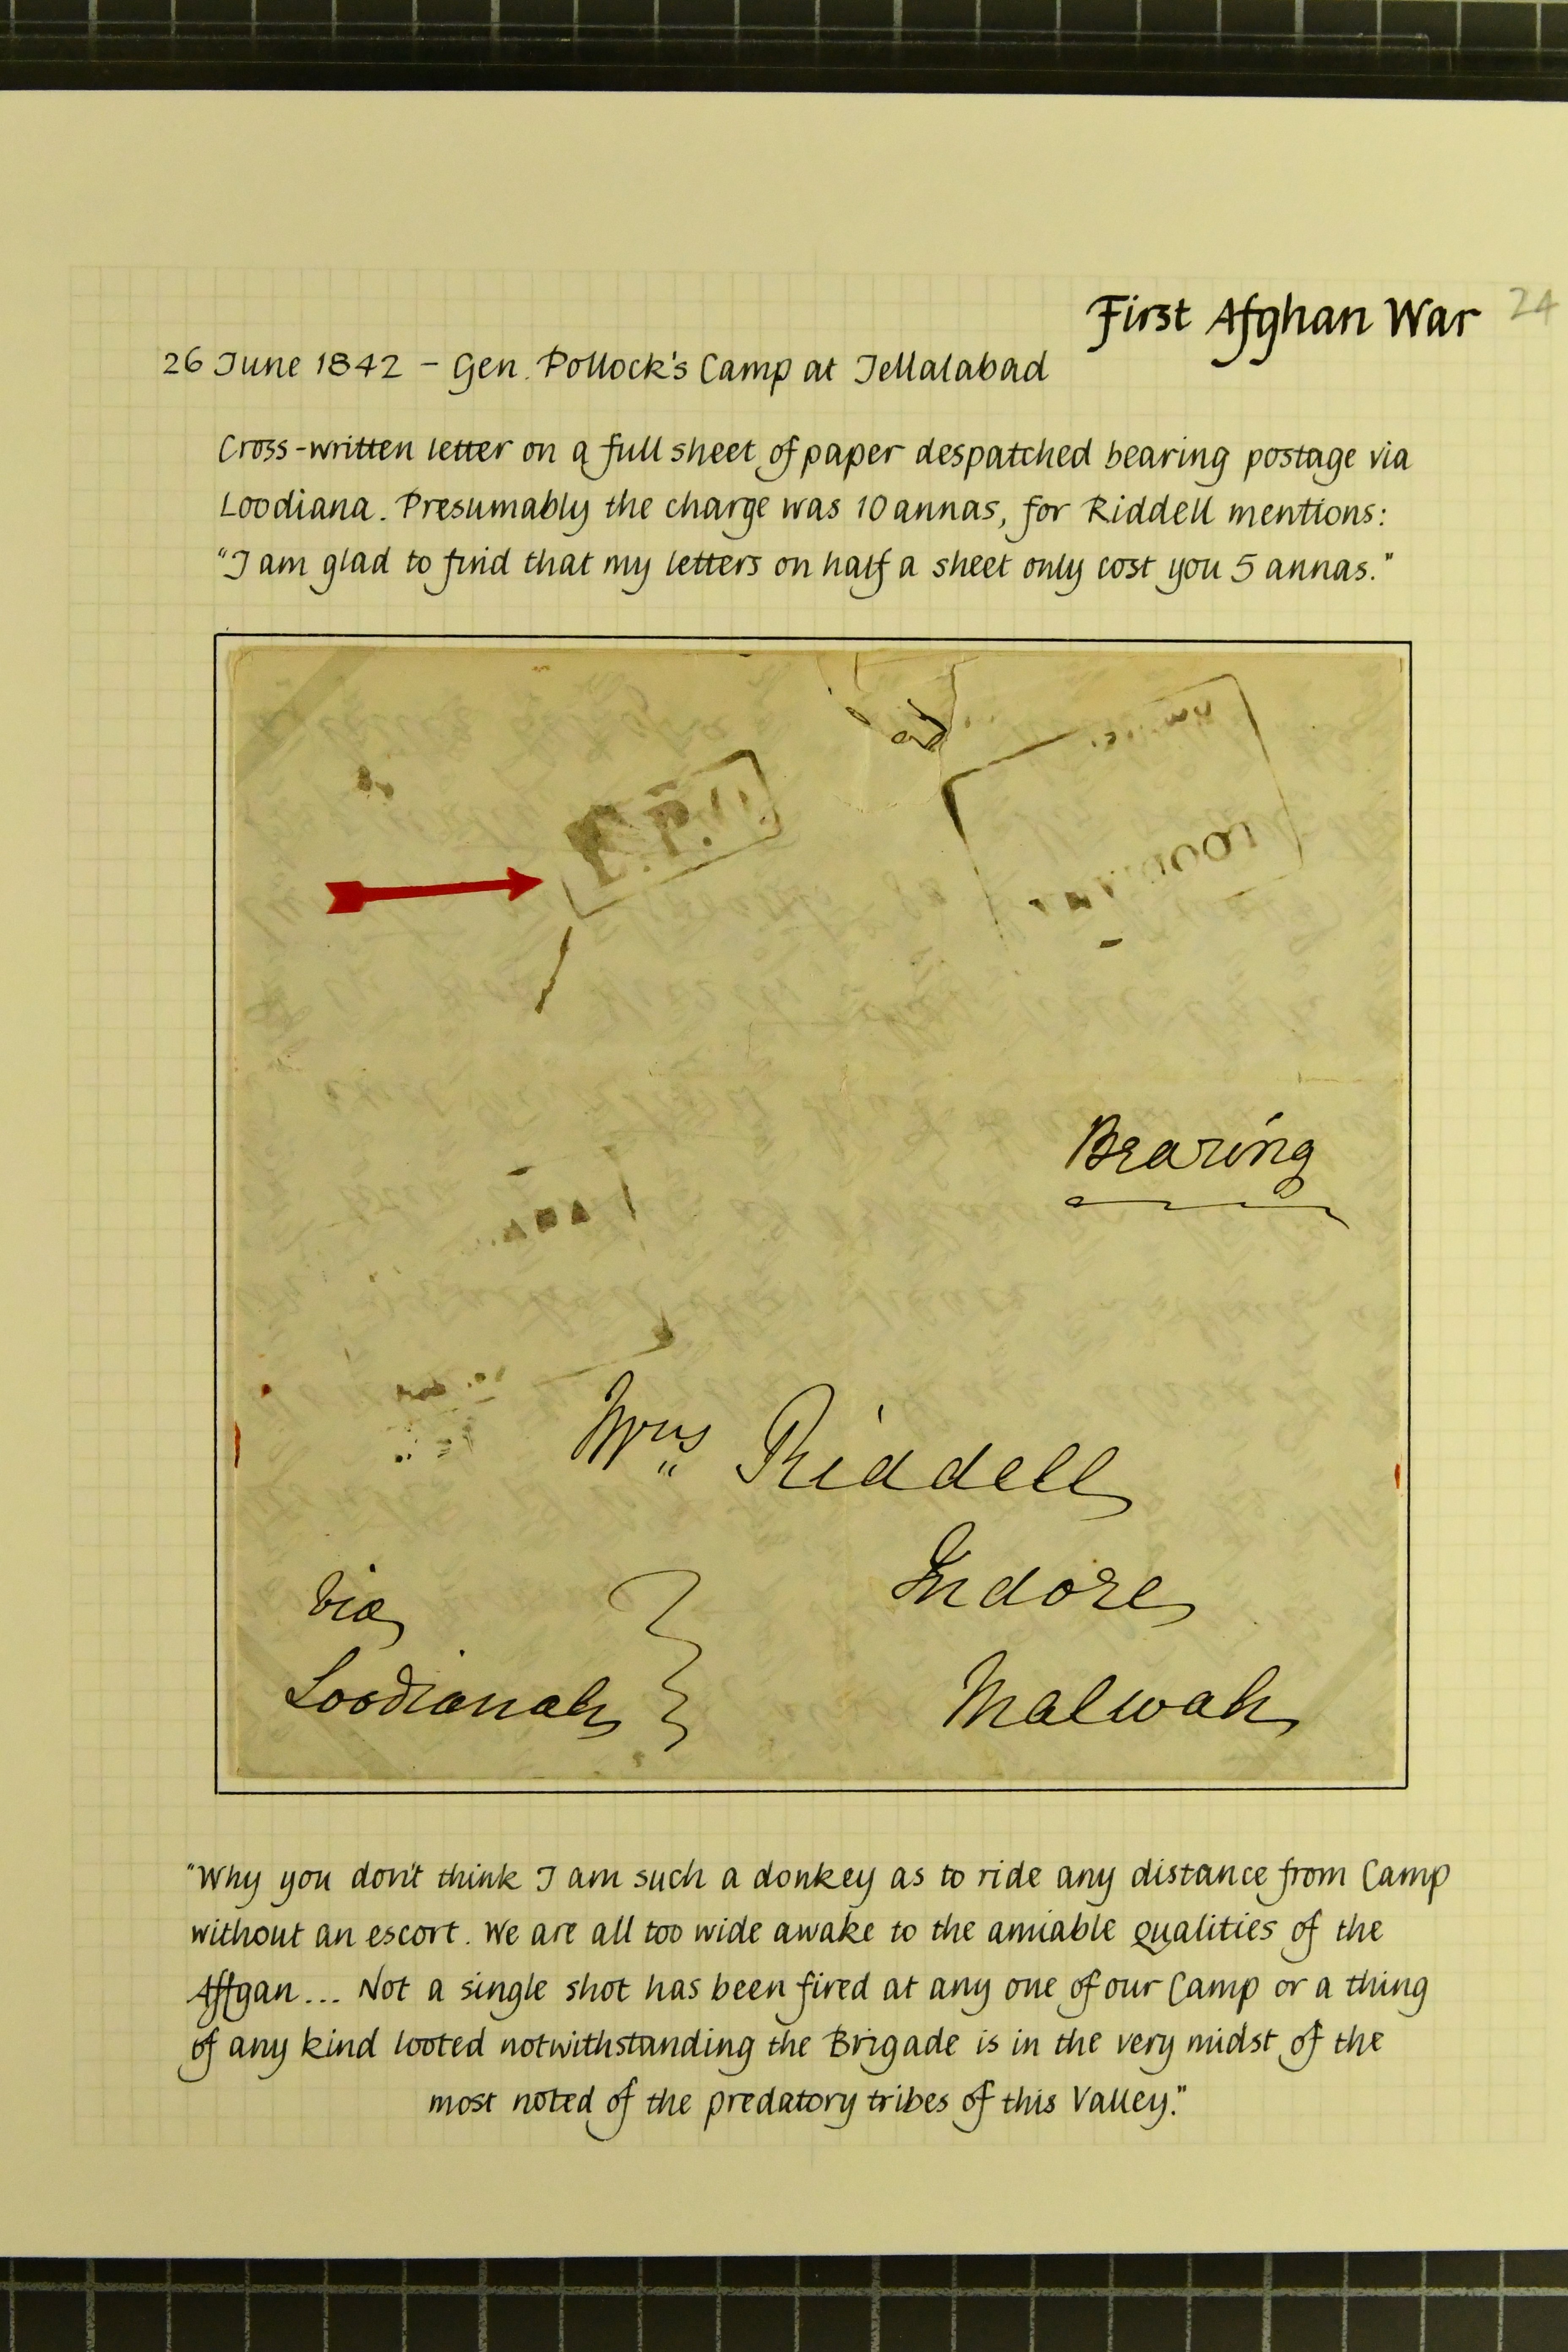 First Afghan War 24
26 June 1842 - Gen. Pollock's Camp at Jellalabad
Cross-written letter on a full sheet of paper despatched bearing postage via
Loodiana. Presumably the charge was 10 annas, for Riddell mentions:
"I am glad to find that my letters on half a sheet only cost you 5 annas."
Bearing
Mrs Riddell
Indore
Malwah
Via
Loodianah
"Why you don't think I am such a donkey as to ride any distance from Camp
without an escort. We are all too wide awake to the amiable qualities of the
Affgan... Not a single shot has been fired at any one of our Camp or a thing
of any kind looted notwithstanding the Brigade is in the very midst of the
most noted of the predatory tribes of this Valley."